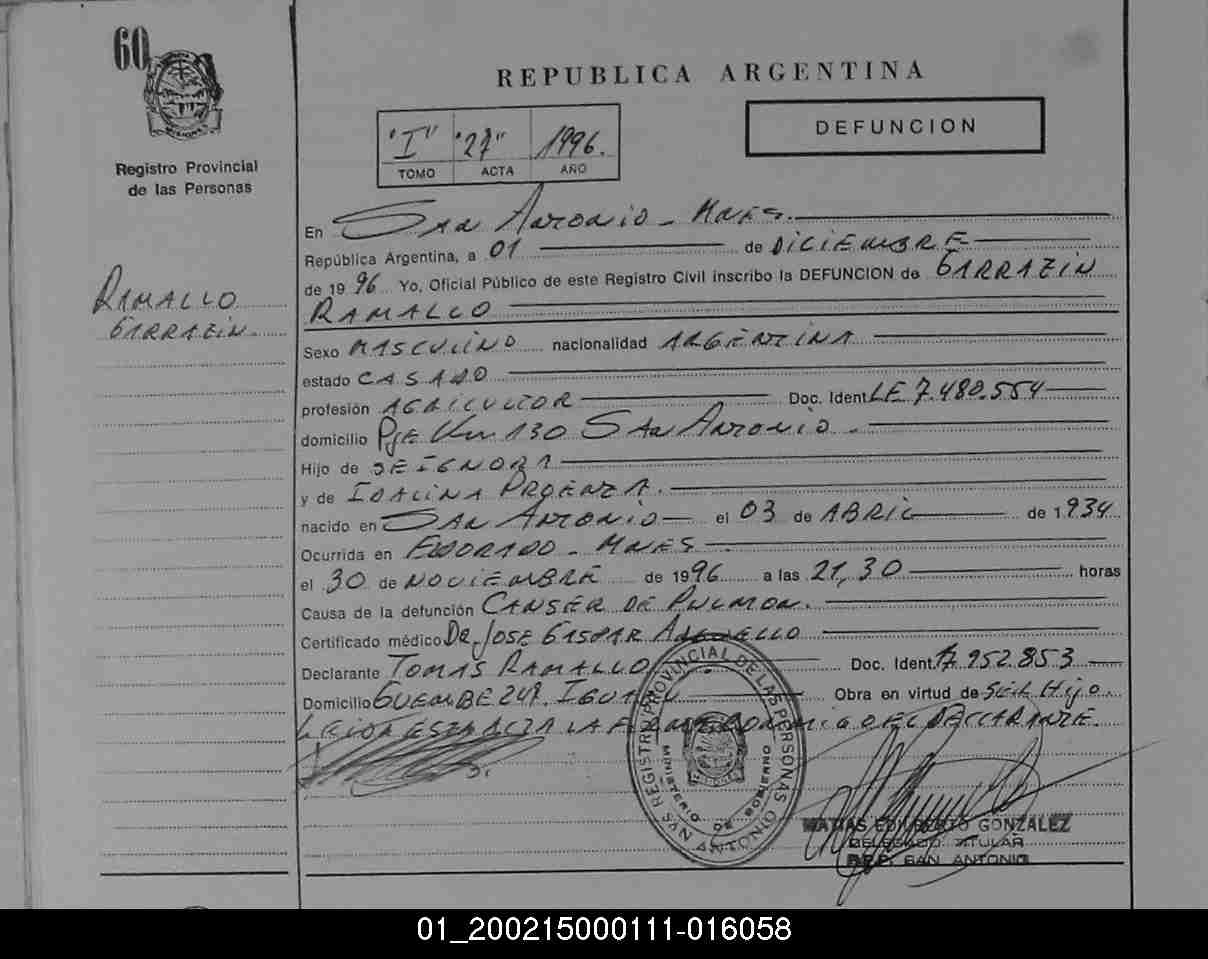 60
REPUBLICA ARGENTINA
"I" "27" 1996.
TOMO ACTA AÑO
DEFUNCION
Registro Provincial
de las Personas
RAMALLO
GARRAZIN.
En SAN ANTONIO - MNES.
República Argentina, a 01 de DICIEMBRE
de 1996 Yo, Oficial Público de este Registro Civil inscribo la DEFUNCION de GARRAZIN
RAMALLO
Sexo MASCULINO nacionalidad ARGENTINA
estado CASADO
profesión AGRICULTOR Doc. Ident. LE 7.480.554
domicilio PJE Km 130 SAN ANTONIO.
Hijo de SEIGNORA
y de IDALINA PROENZA.
nacido en SAN ANTONIO el 03 de ABRIL de 1934
Ocurrida en ELDORADO - MNES.
el 30 de NOVIEMBRE de 1996 a las 21,30 horas
Causa de la defunción CANSER DE PULMON.
Certificado médico DR. JOSE GASPAR
Declarante TOMAS RAMALLO Doc. Ident. 17.952.853
Domicilio GUEMBE 249. IGUAZU Obra en virtud de SER HIJO
LEIDA ESTA ACTA LA FIRMA CONMIGO EL DECLARANTE.
REGISTRO PROVINCIAL DE LAS PERSONAS
MINISTERIO DE GOBIERNO
SAN ANTONIO
MATIAS EDILBERTO GONZALEZ
DELEGADO TITULAR
R.P.P. SAN ANTONIO
01_200215000111-016058